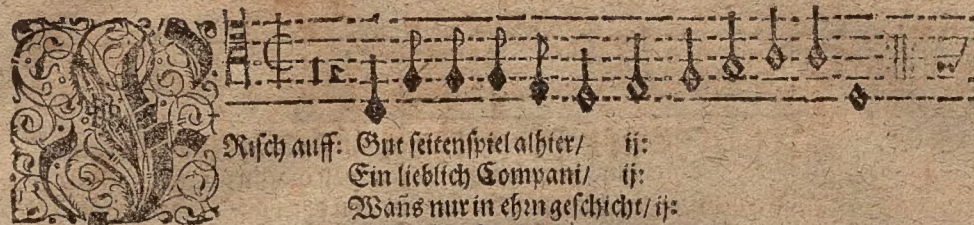 FRisch auff: Gut seitenspiel alhier/ ij:
Ein lieblich Compani/ ij:
Wañs nur in ehrn geschicht/ ij: